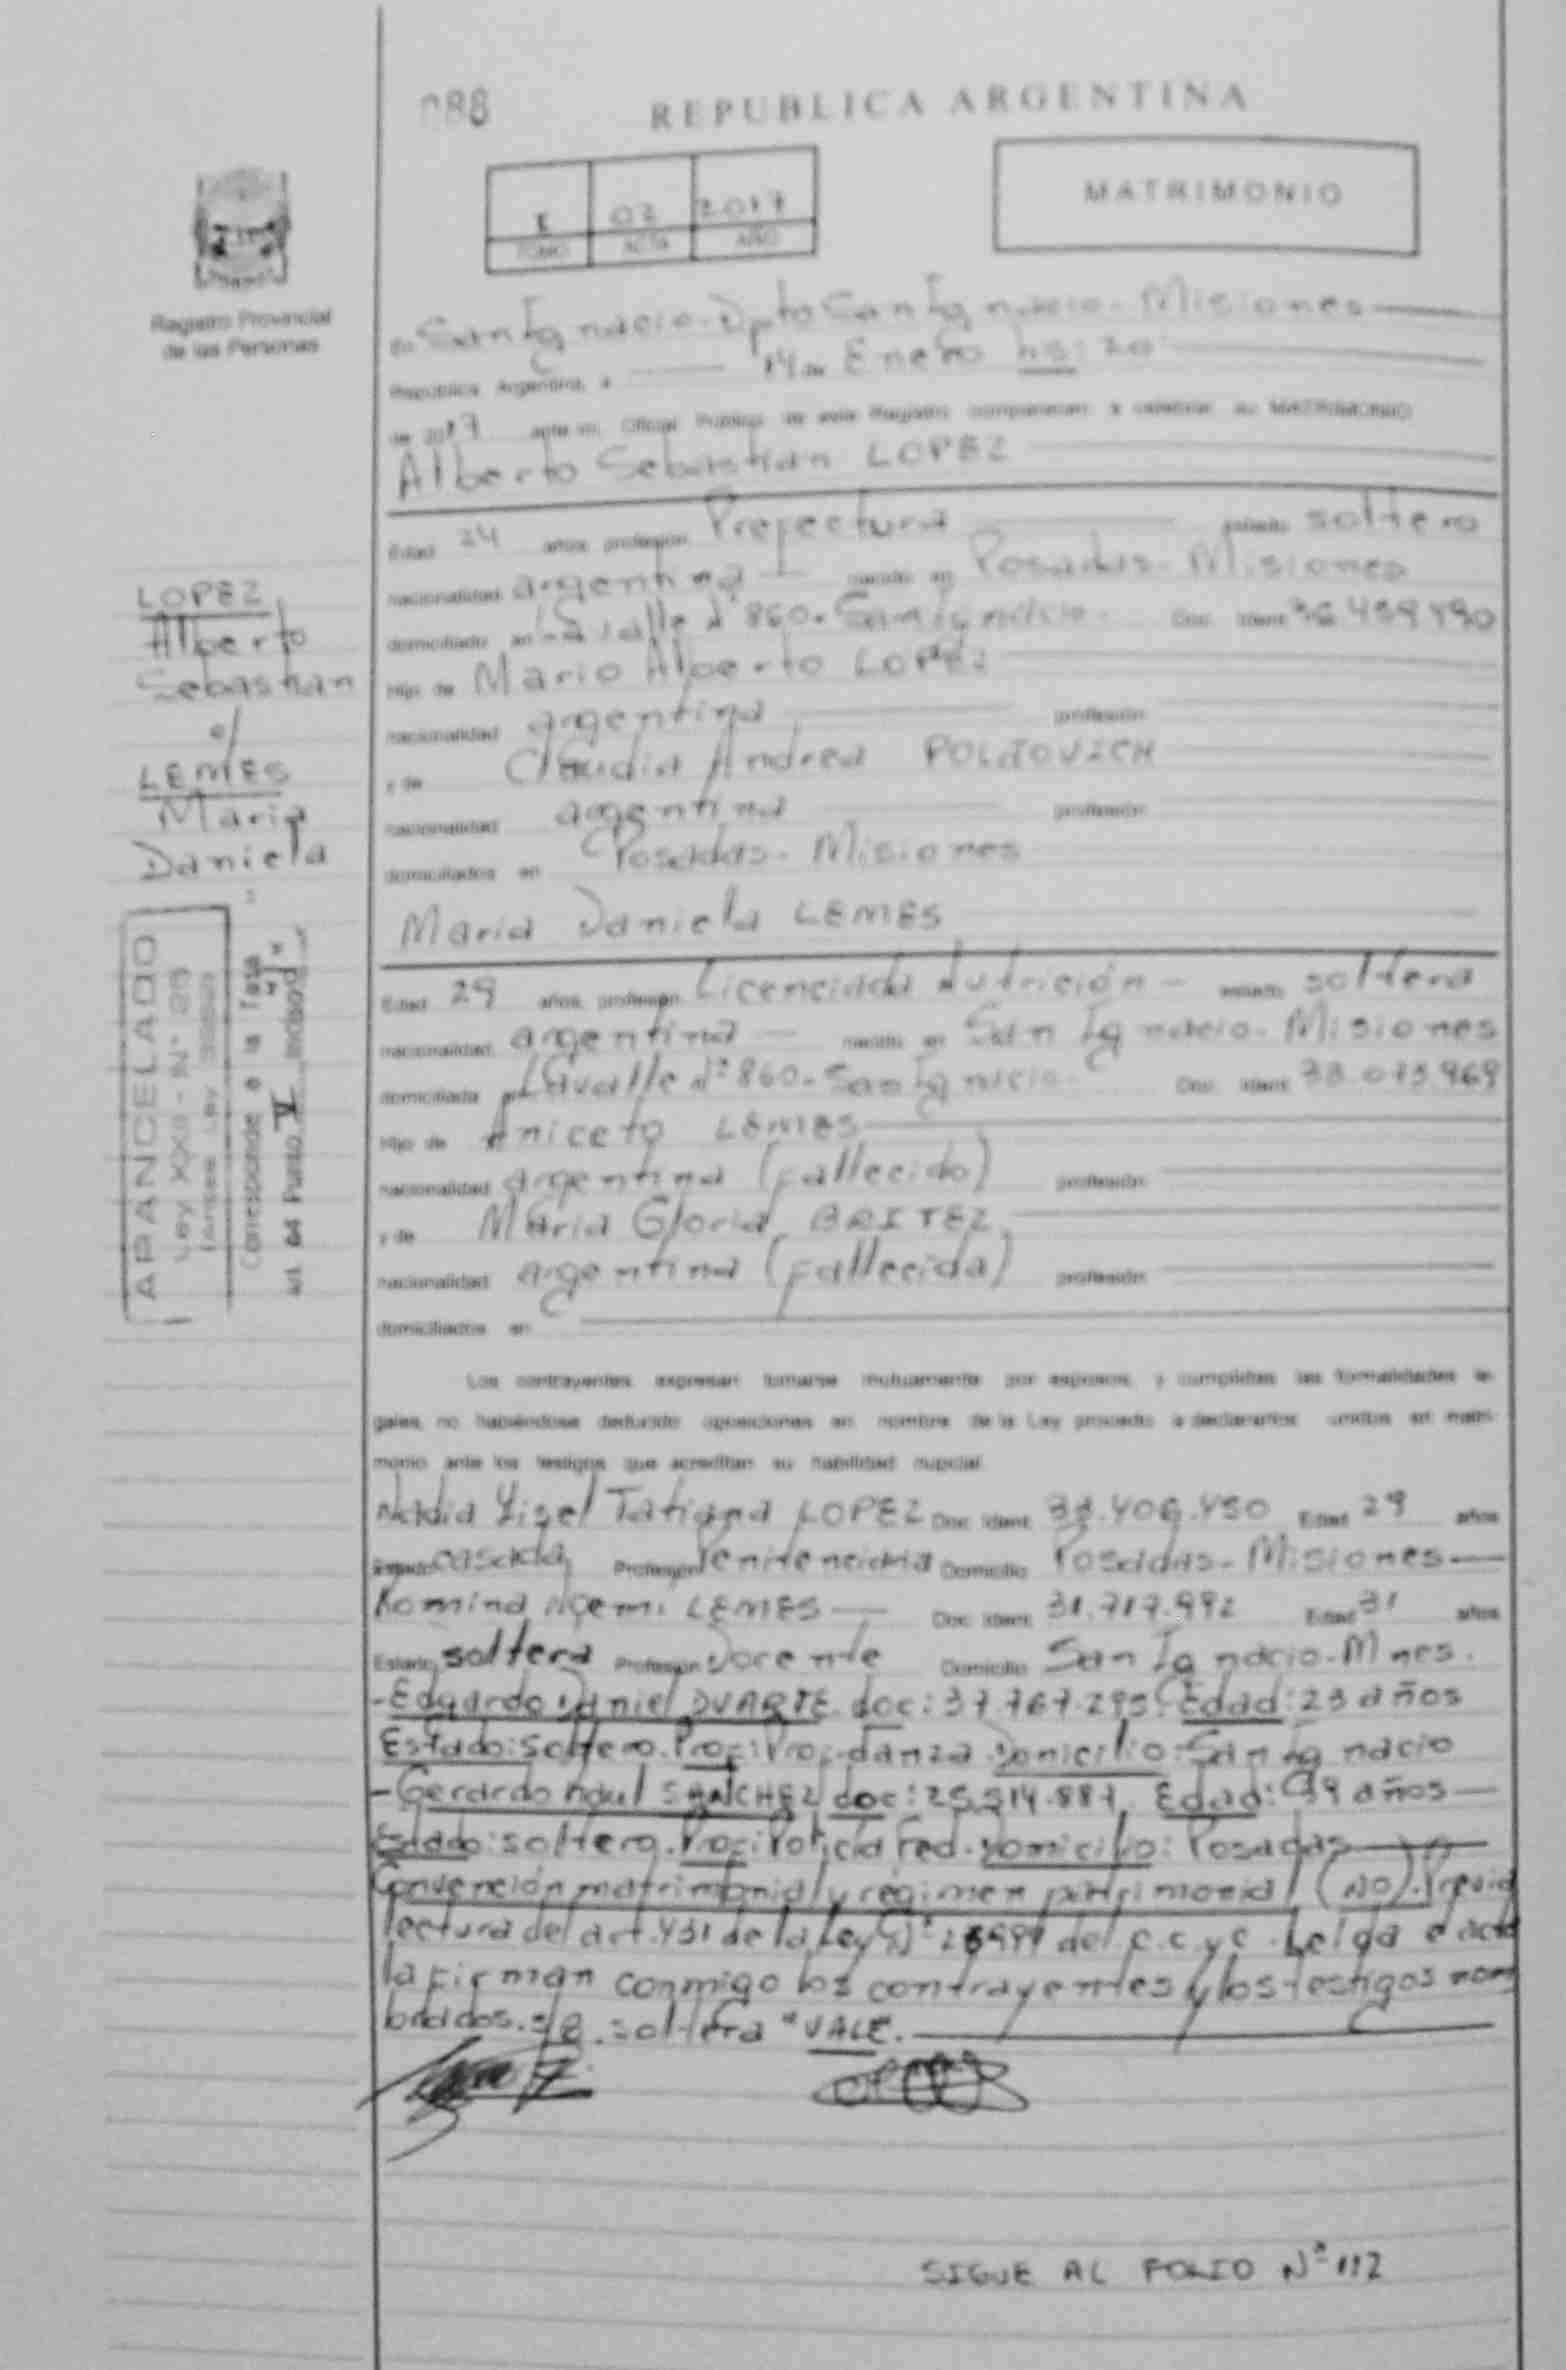 088
REPUBLICA ARGENTINA
I 02 2017
TOMO ACTA AÑO
MATRIMONIO
Registro Provincial
de las Personas
En San Ignacio - Dpto San Ignacio - Misiones
República Argentina, a 14 de Enero hs: 20
de 2017 ante mi, Oficial Público de este Registro comparecen a celebrar su MATRIMONIO
Alberto Sebastian LOPEZ
Edad 24 años profesión Prefectura estado soltero
nacionalidad argentina nacido en Posadas - Misiones
domiciliado en Lavalle Nº 860 - San Ignacio - Doc. Ident.
Hijo de Mario Alberto LOPEZ
nacionalidad argentina profesión
y de Claudia Andrea POLJOVICH
nacionalidad argentina profesión
domiciliados en Posadas - Misiones
Maria Daniela LEMES
Edad 29 años, profesión Licenciada Nutrición - estado soltera
nacionalidad argentina nacida en San Ignacio - Misiones
domiciliada en Lavalle Nº 860 - San Ignacio - Doc. Ident. 33.073.969
Hija de Aniceto LEMES
nacionalidad argentina (fallecido) profesión
y de Maria Gloria BRITEZ
nacionalidad argentina (fallecida) profesión
domiciliados en
LOPEZ
Alberto
Sebastian
c/
LEMES
Maria
Daniela
ARANCELADO
Ley XXII - Nº 25
(Antes Ley
Corresponde a la Tasa
Art. 64 Punto V Inciso "d"
Los contrayentes expresan tomarse mutuamente por esposos, y cumplidas las formalidades le-
gales, no habiéndose deducido oposiciones en nombre de la Ley procedo a declararlos unidos en matri-
monio ante los testigos que acreditan su habilidad nupcial.
Nadia Yisel Tatiana LOPEZ Doc. Ident. 33.406.450 Edad 29 años
Estado casada Profesión Penitenciaria Domicilio Posadas - Misiones
Romina Noemi LEMES Doc. Ident. 31.717.992 Edad 31 años
Estado soltera Profesión Docente Domicilio San Ignacio - Mnes.
- Edgardo Daniel DUARTE doc: 37.767.295. Edad: 23 años
Estado: soltero. Prof: Prof. danza. Domicilio: San Ignacio
- Gerardo Raul SANCHEZ doc: 25.514.887. Edad: 39 años
Estado: soltero. Prof: Policia Fed. Domicilio: Posadas
Convención matrimonial y régimen patrimonial (NO). Previa
lectura del art. 431 de la Ley Nº 26994 del C.C. y C. Leida e acta
la firman conmigo los contrayentes y los testigos nom
brados. s/e. soltera "VALE.
SIGUE AL FOLIO Nº 112